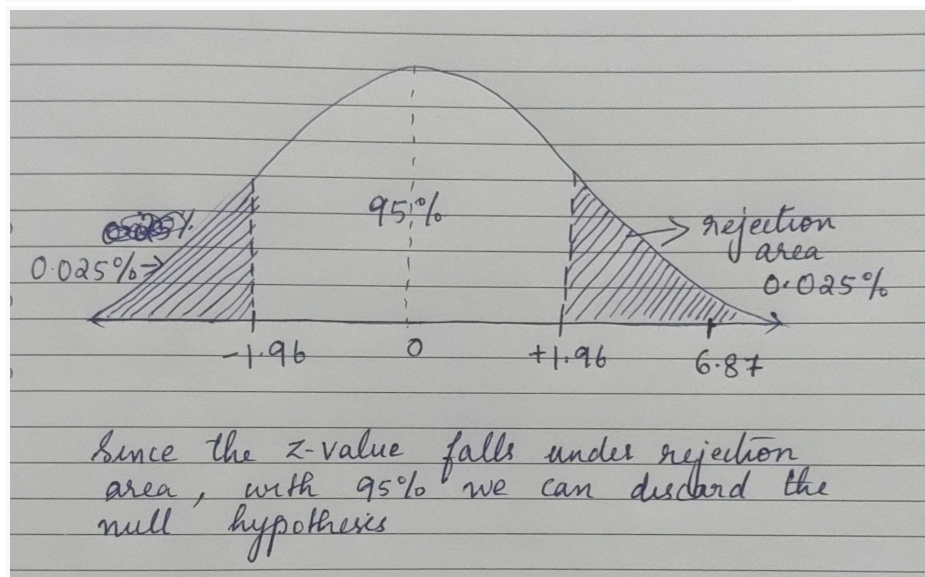 95%
rejection
area
0.025%
0.025%
-1.96
0
+1.96
6.87
Since the z-value falls under rejection
area, with 95% we can discard the
null hypothesis